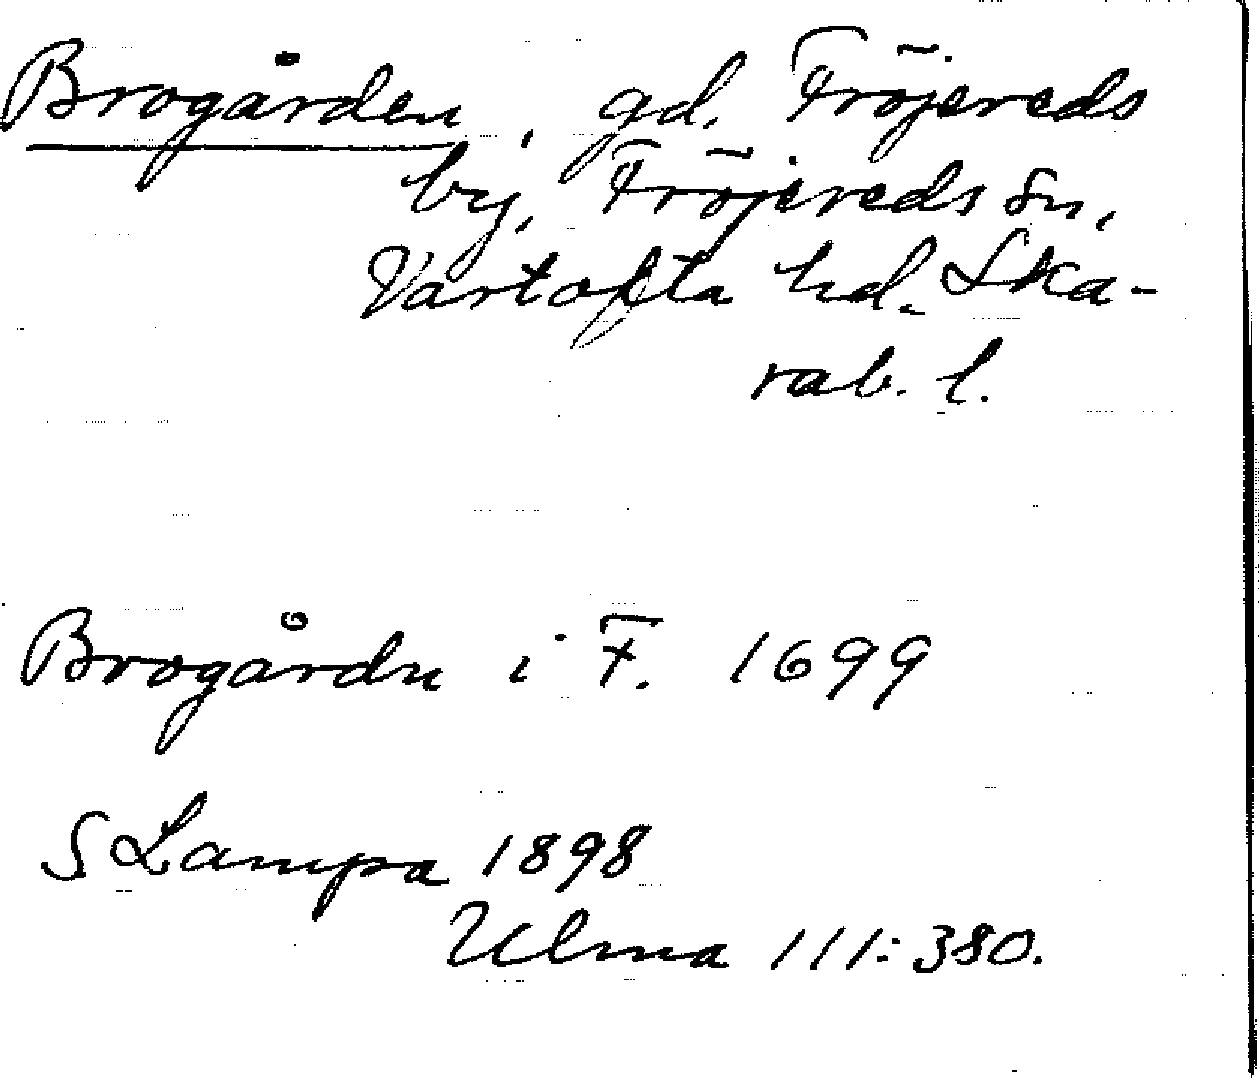 Brogården, gd. Fröjereds
by, Fröjereds sn,
Vartofta hd. Ska-
rab. l.
Brogårdn i F. 1699
S Lampa 1898
Ulma 111:380.